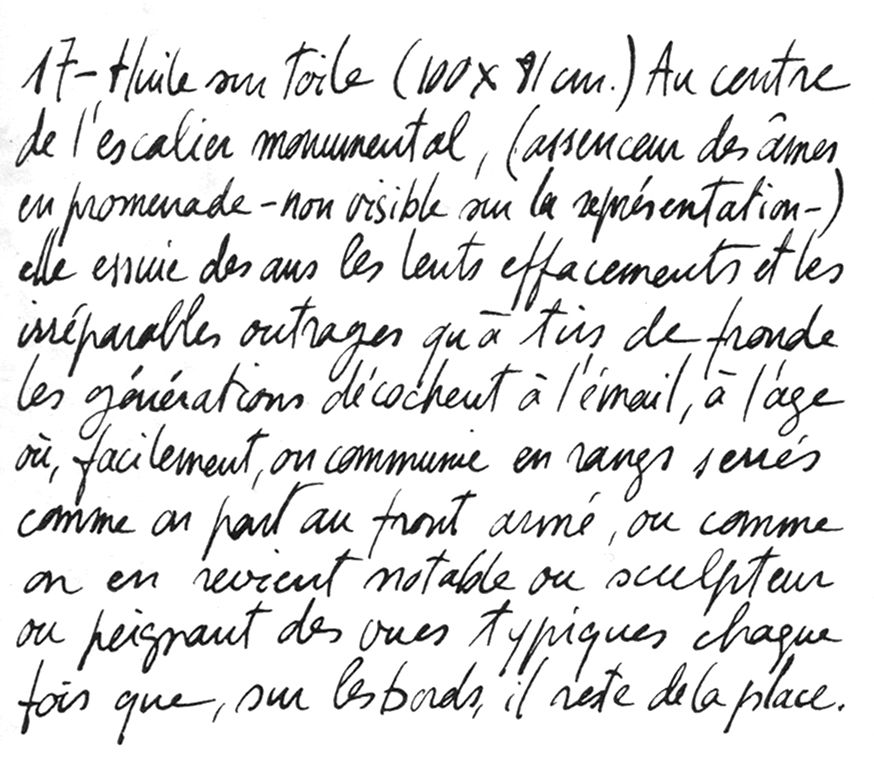 17 - Huile sur toile (100 x 81 cm.) Au centre
de l'escalier monumental, (assenceur des âmes
en promenade - non visible sur la représentation -)
elle essuie des ans les lents effacements et les
irréparables outrages qu'à tirs de fronde
les générations décochent à l'émail, à l'âge
où, facilement, on communie en rangs serrés
comme on part au front armé, ou comme
on en revient notable ou sculpteur
ou peignant des vues typiques chaque
fois que, sur les bords, il reste de la place.